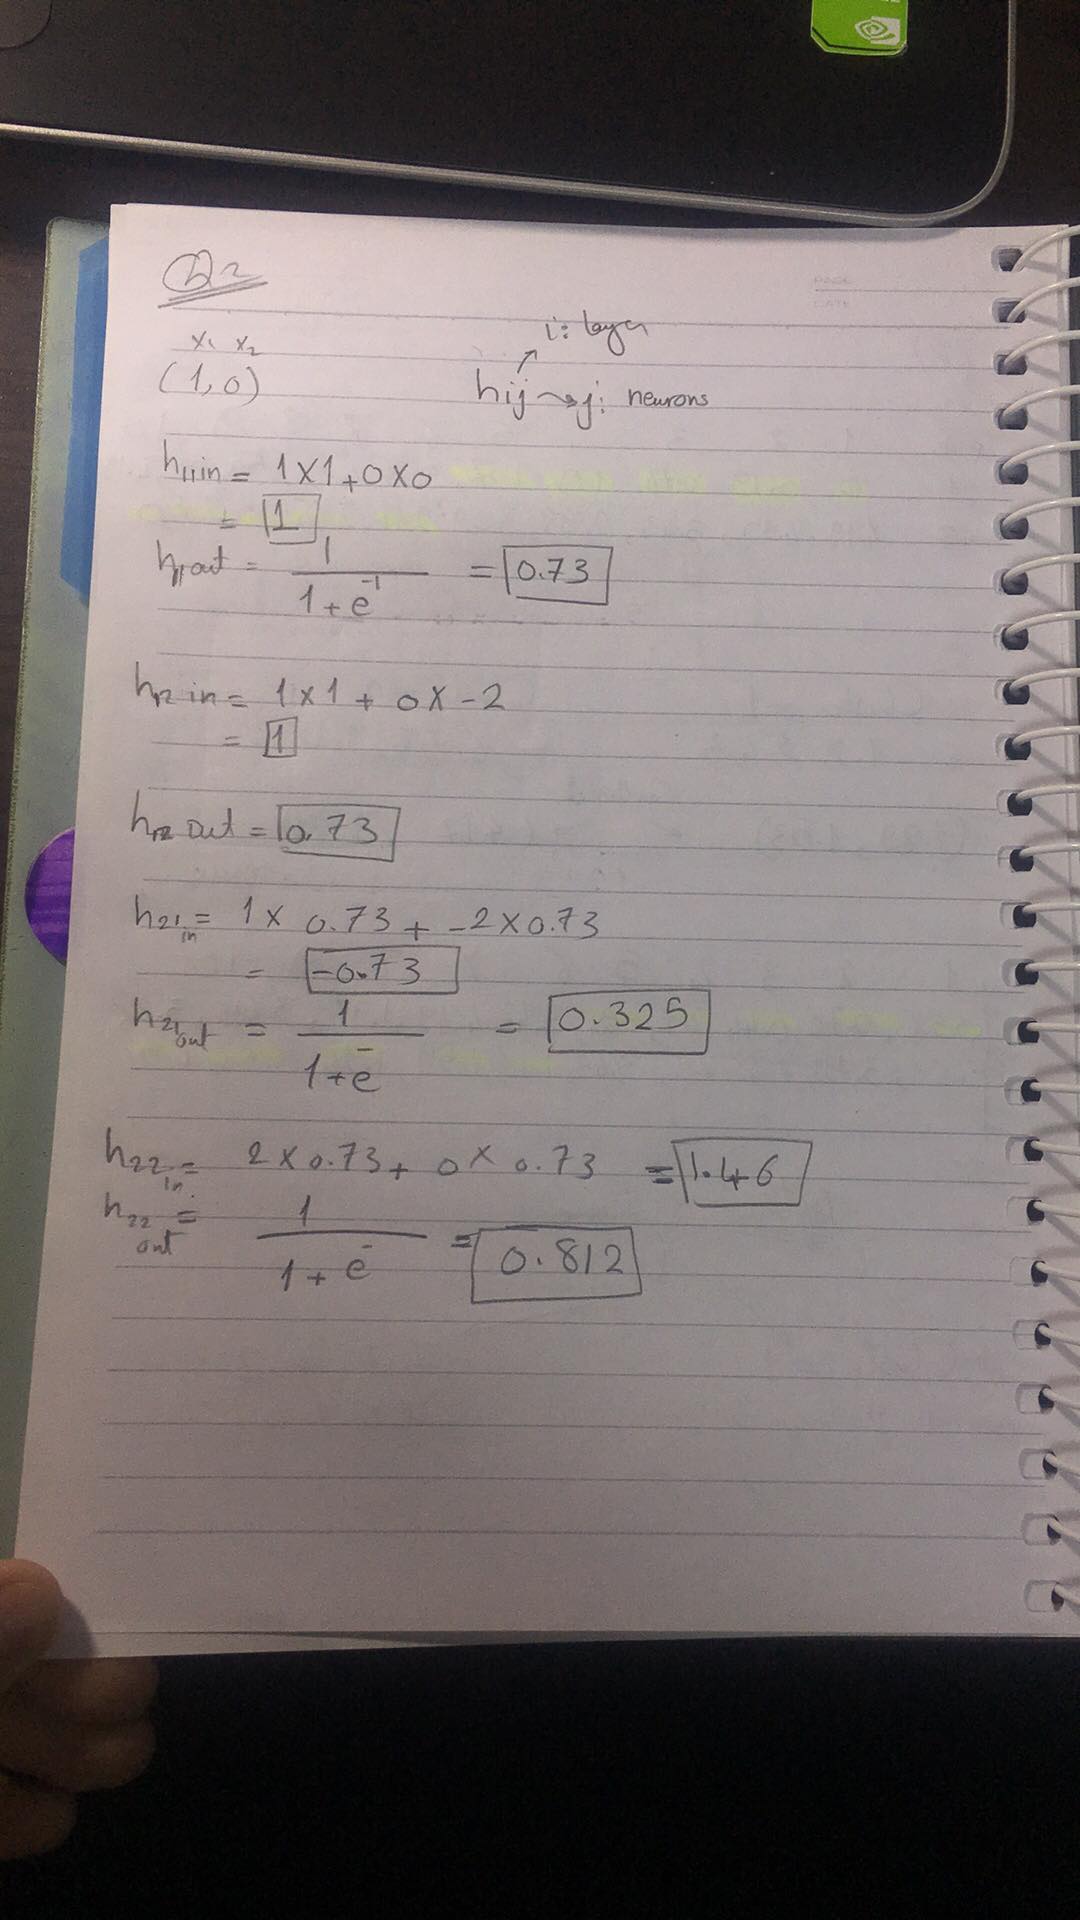 Q2
PAGE
DATE
i: layer
x₁ x₂
(1,0)
hij → j: neurons
h₁₁in = 1×1+0×0
= 1
h₁₁out = 1 / 1+e⁻¹ = 0.73
h₁₂ in = 1×1 + 0×-2
= 1
h₁₂ out = 0.73
h₂₁ in = 1× 0.73 + -2×0.73
= -0.73
h₂₁ out = 1 / 1+e⁻ = 0.325
h₂₂ in = 2×0.73+ 0× 0.73 = 1.46
h₂₂ out = 1 / 1+e⁻ = 0.812